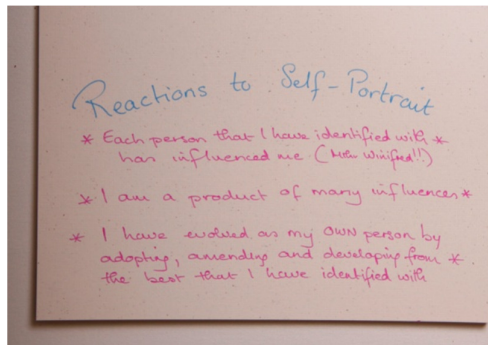 Reactions to Self-Portrait
* Each person that I have identified with *
has influenced me (Winifred!!)
* I am a product of many influences *
* I have evolved as my OWN person by
adopting, amending and developing from *
the best that I have identified with